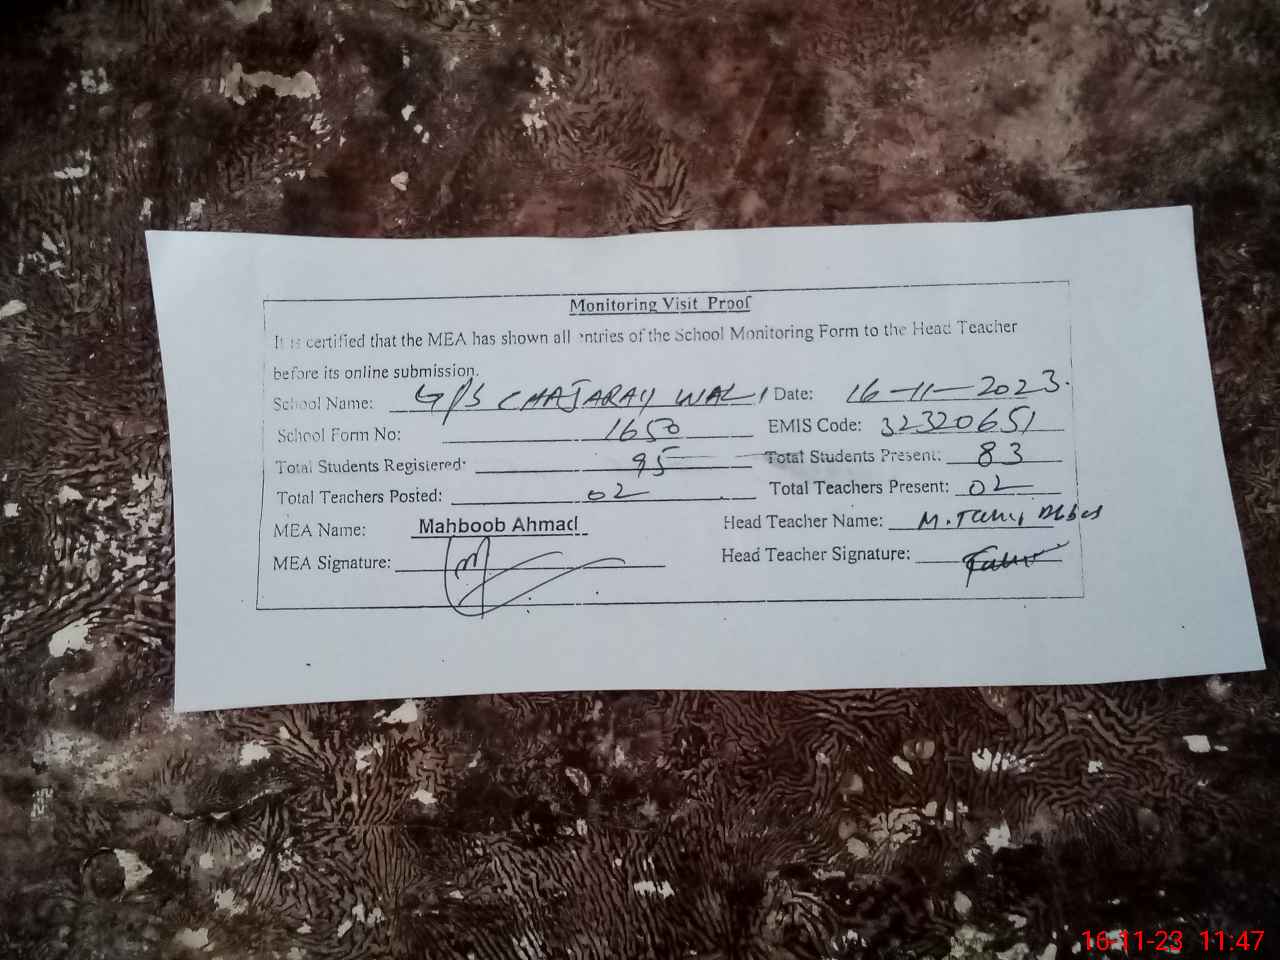 Monitoring Visit Proof
It is certified that the MEA has shown all entries of the School Monitoring Form to the Head Teacher
before its online submission.
School Name: G/S CHAJARAY WALI Date: 16-11-2023.
School Form No: 1650 EMIS Code: 32320651
Total Students Registered: 95 Total Students Present: 83
Total Teachers Posted: 02 Total Teachers Present: 02
MEA Name: Mahboob Ahmad Head Teacher Name: M. Abbas
MEA Signature: Head Teacher Signature:
16-11-23 11:47